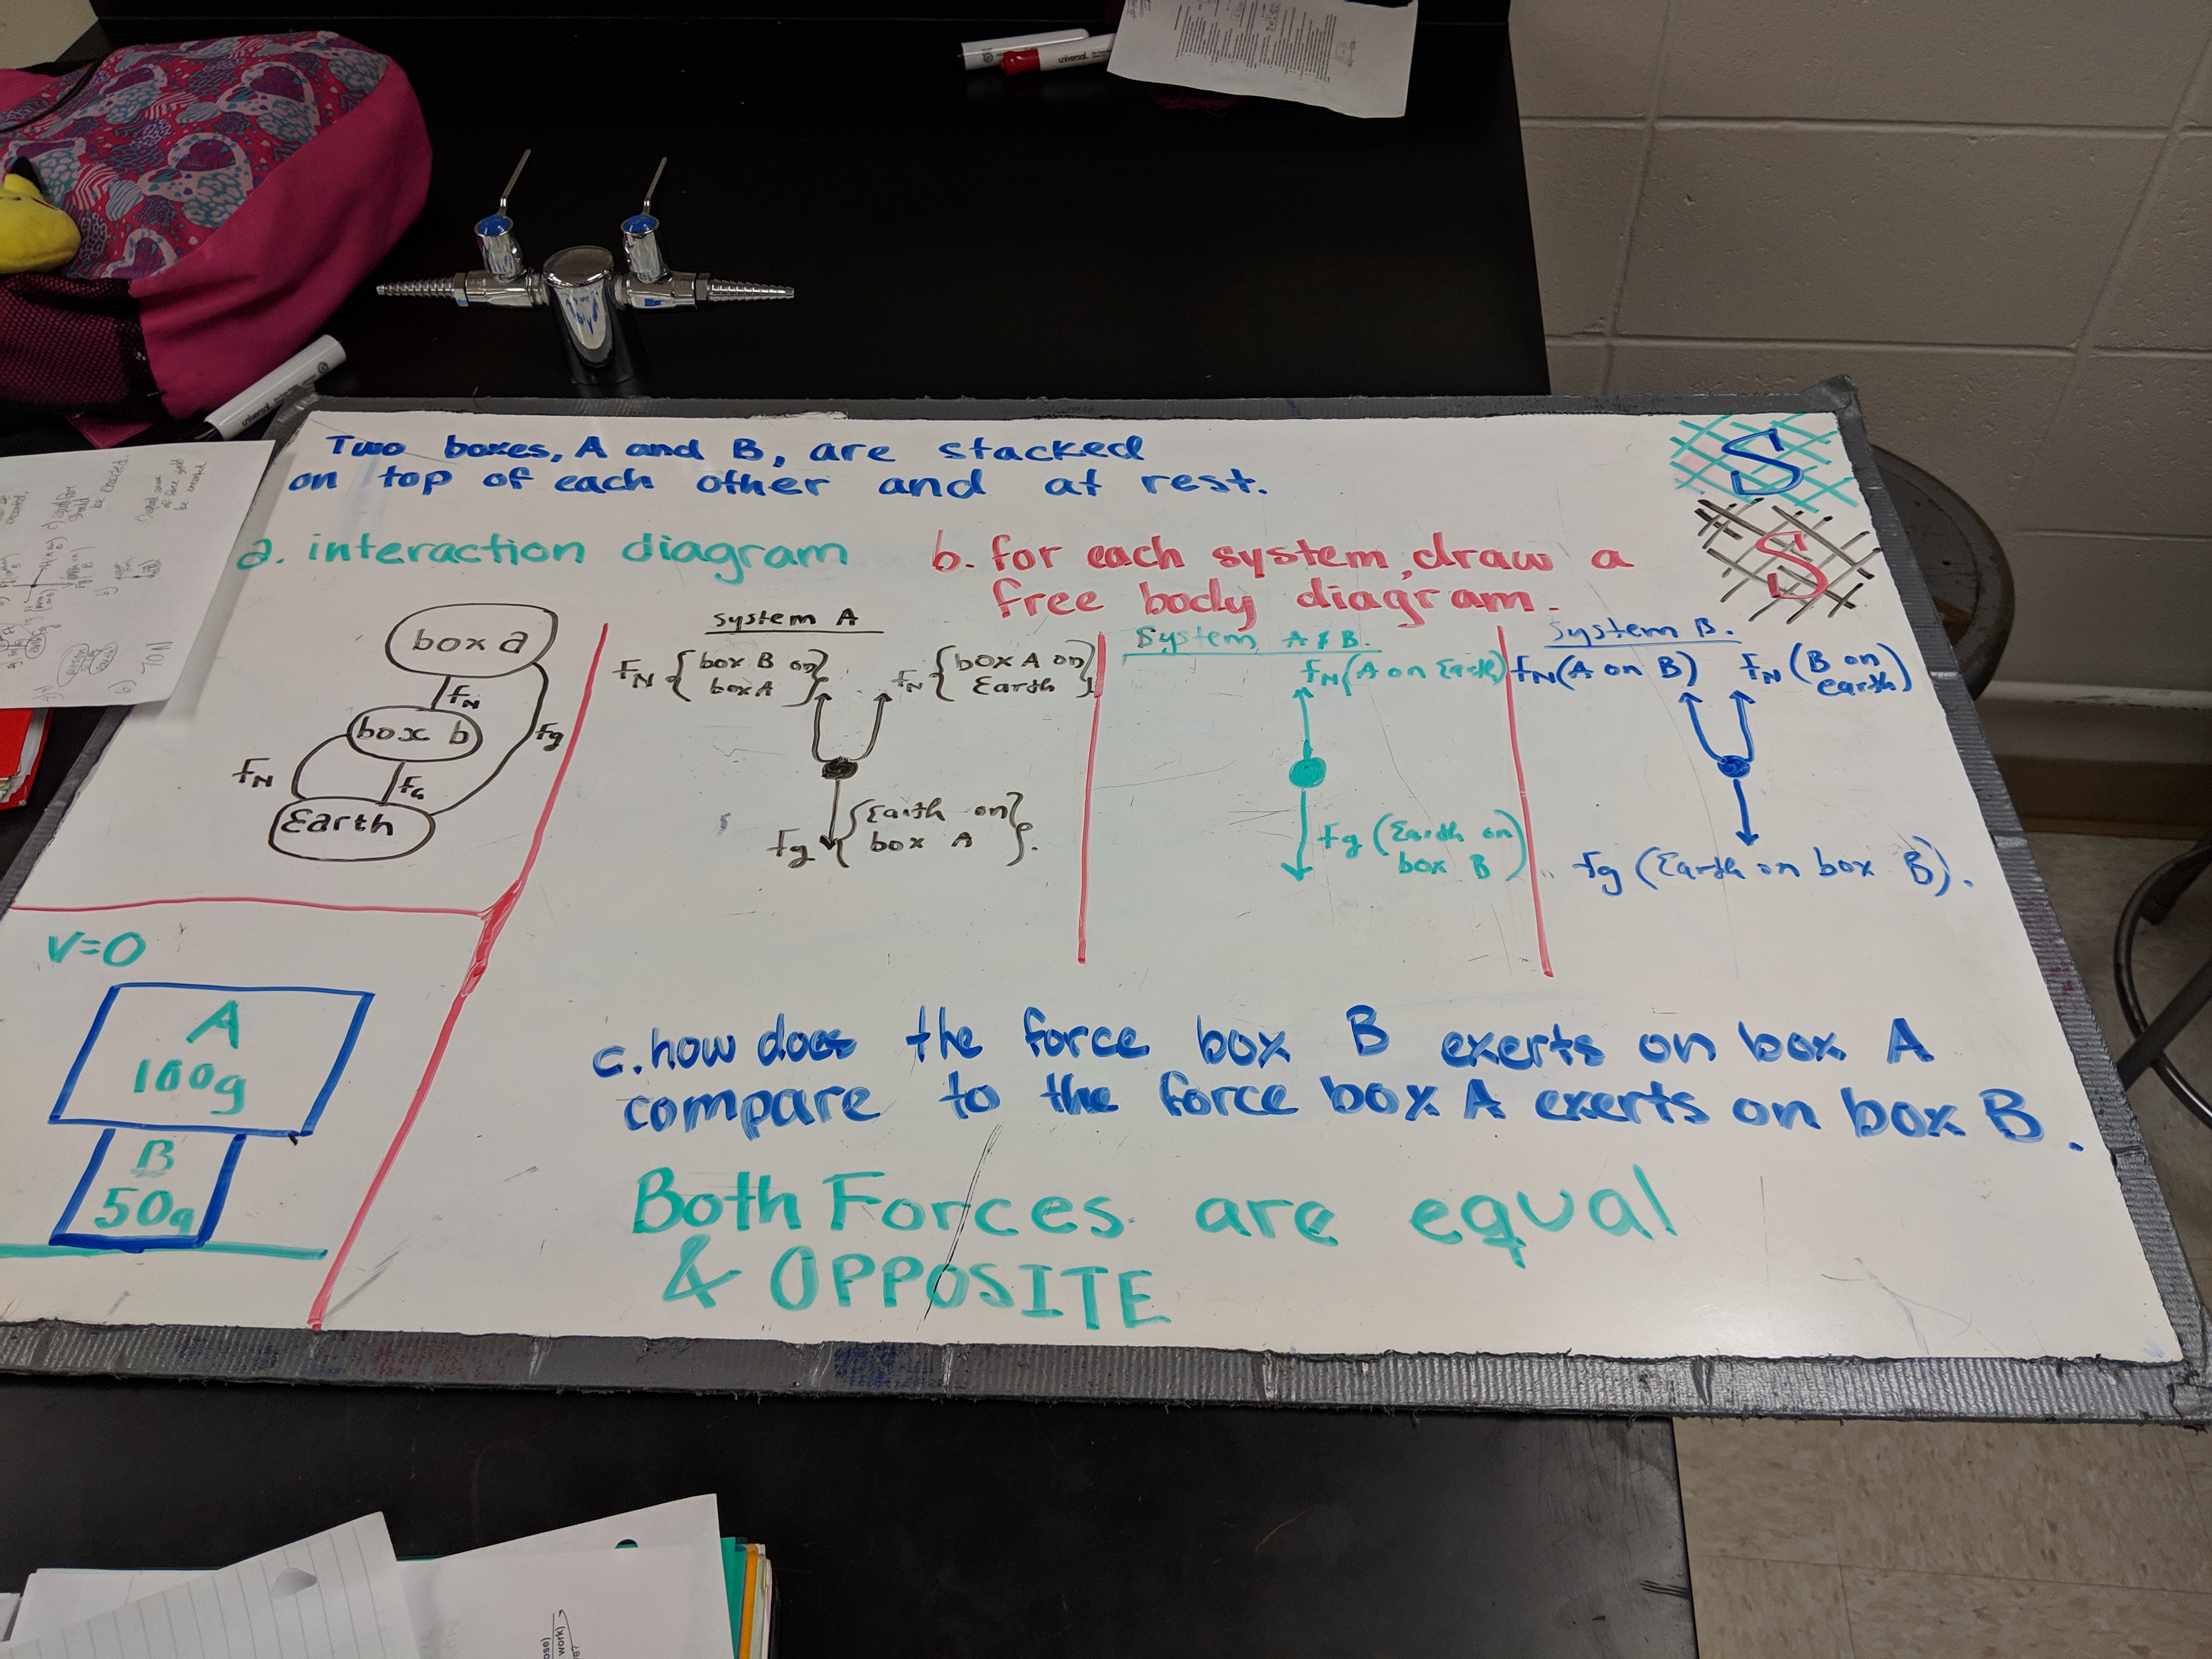 Two boxes, A and B, are stacked
on top of each other and at rest.
S
S
a. interaction diagram
b. for each system, draw a
free body diagram.
box a
fN
box b
fg
fN
fG
Earth
System A
fN { box B on
box A }
fN { box A on
Earth }
Fg { Earth on
box A }.
System A & B.
fN (A on Earth)
Fg (Earth on
box B)
System B.
fN (A on B)
fN (B on
earth)
Fg (Earth on box B).
V=0
A
100g
B
50g
c. how does the force box B exerts on box A
compare to the force box A exerts on box B.
Both Forces are equal
& OPPOSITE
universal